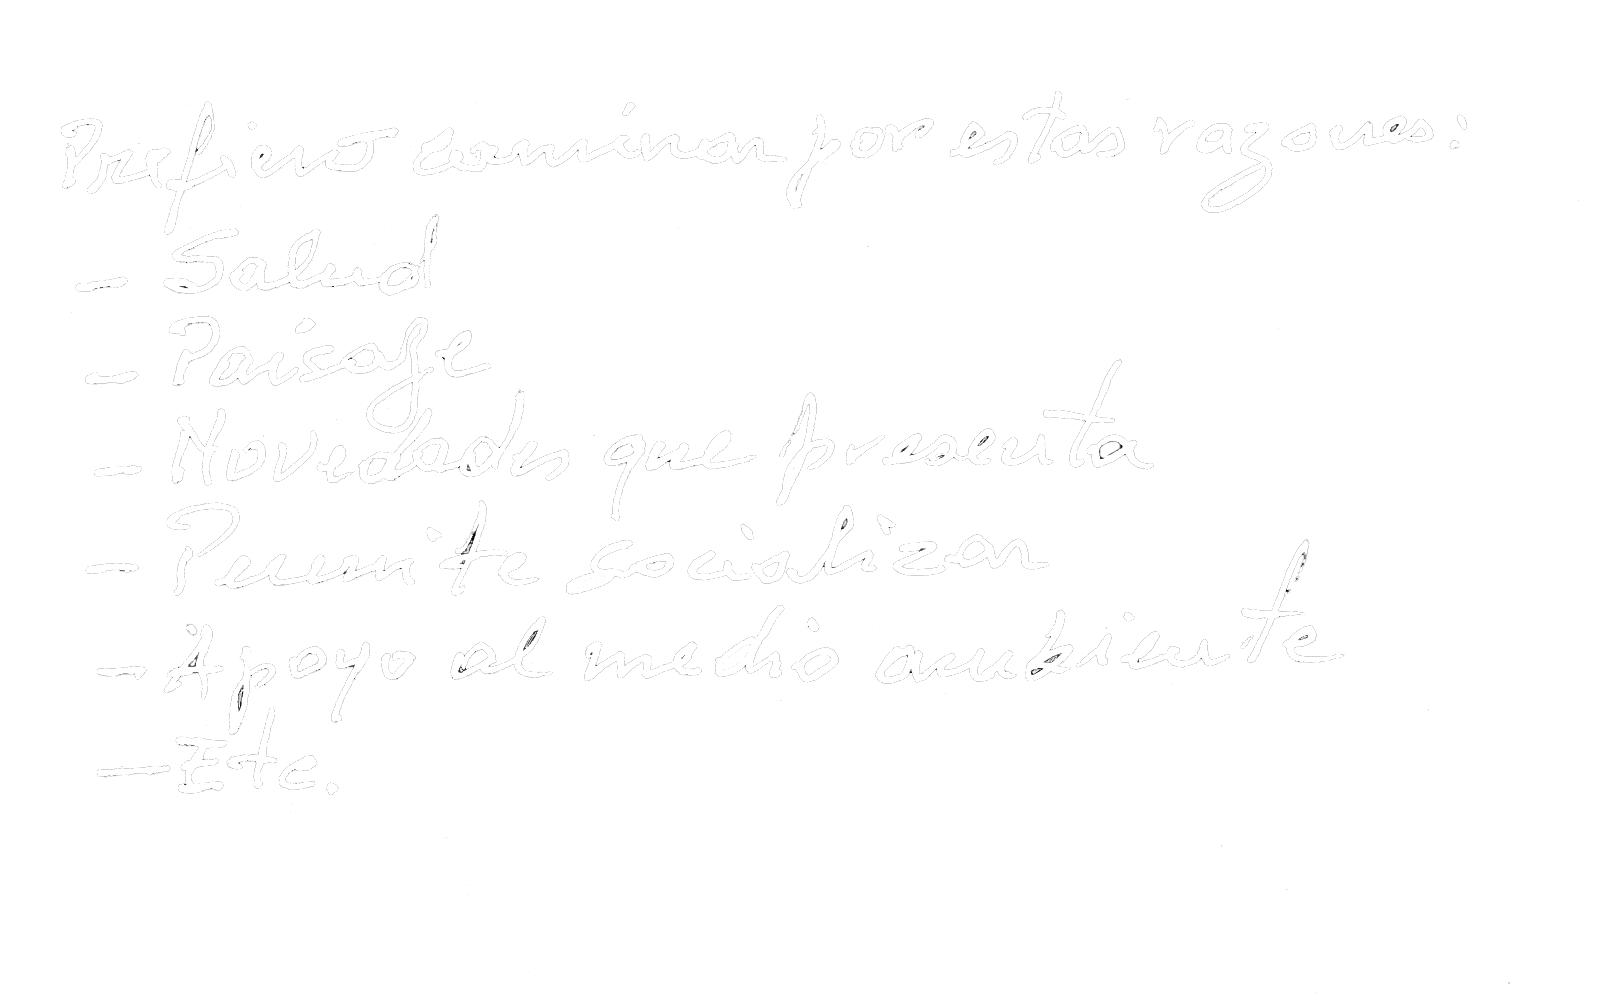 Prefiero caminar por estas razones:
- Salud
- Paisaje
- Novedades que presenta
- Permite socializar
- Apoyo al medio ambiente
- Etc.